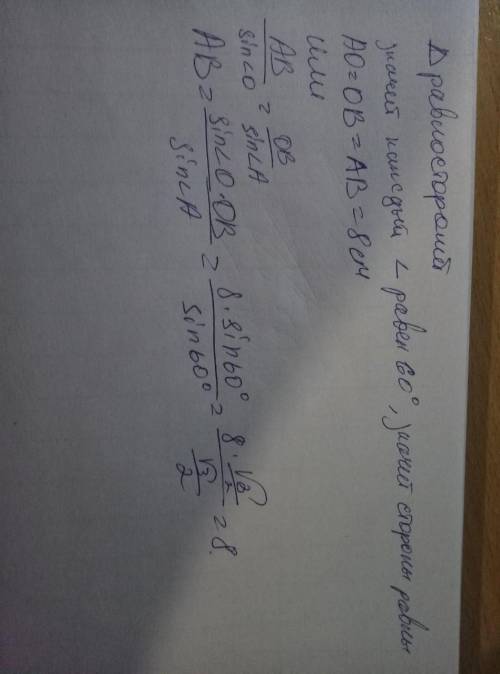 Δ равносторонний
значит каждый ∠ равен 60°, значит стороны равны
AO = OB = AB = 8 см
или
AB/sin∠O = OB/sin∠A
AB = sin∠O·OB/sin∠A = 8·sin60°/sin60° = 8·√3/2/√3/2 = 8.